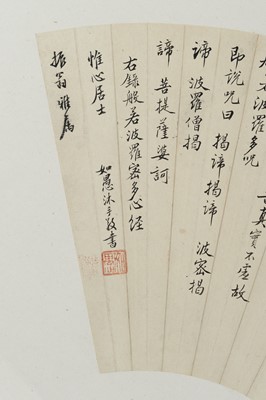 波羅多呪
真實不虛故
即說咒曰 揭諦揭諦 波容揭
諦 波羅僧揭
諦 菩提薩婆訶
右錄般若波羅密多心経
惟心居士
如愚沐手敬書
振翁雅属